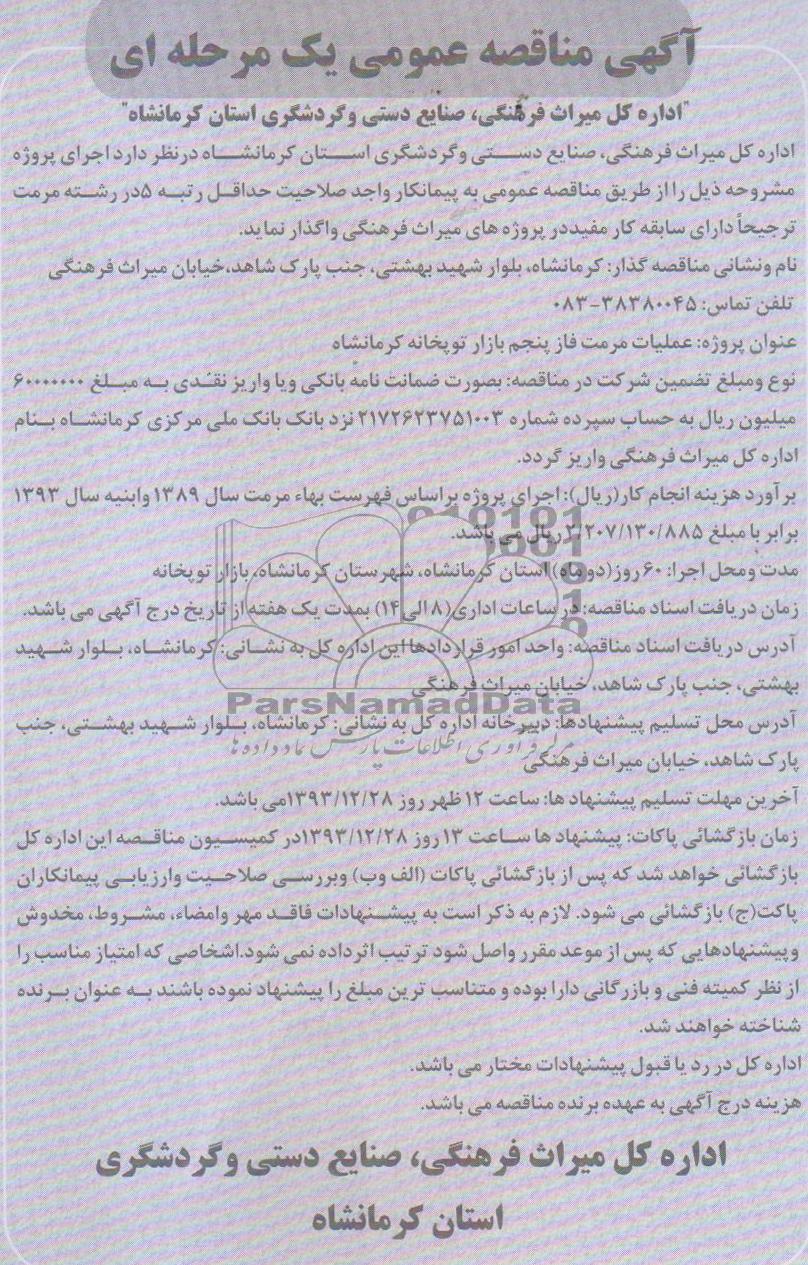 آگهی مناقصه عمومی یک مرحله ای
"اداره کل میراث فرهنگی، صنایع دستی وگردشگری استان کرمانشاه"
اداره کل میراث فرهنگی، صنایع دستی وگردشگری استان کرمانشاه درنظر دارد اجرای پروژه
مشروحه ذیل را از طریق مناقصه عمومی به پیمانکار واجد صلاحیت حداقل رتبه ۵در رشته مرمت
ترجیحاً دارای سابقه کار مفیددر پروژه های میراث فرهنگی واگذار نماید.
نام ونشانی مناقصه گذار: کرمانشاه، بلوار شهید بهشتی، جنب پارک شاهد،خیابان میراث فرهنگی
تلفن تماس: ۳۸۳۸۰۰۴۵-۰۸۳
عنوان پروژه: عملیات مرمت فاز پنجم بازار توپخانه کرمانشاه
نوع ومبلغ تضمین شرکت در مناقصه: بصورت ضمانت نامه بانکی ویا واریز نقدی به مبلغ ۶۰۰۰۰۰۰۰
میلیون ریال به حساب سپرده شماره ۲۱۷۲۶۲۳۷۵۱۰۰۳ نزد بانک بانک ملی مرکزی کرمانشاه بنام
اداره کل میراث فرهنگی واریز گردد.
برآورد هزینه انجام کار(ریال): اجرای پروژه براساس فهرست بهاء مرمت سال ۱۳۸۹ وابنیه سال ۱۳۹۳
برابر با مبلغ ۲/۲۰۷/۱۳۰/۸۸۵ ریال می باشد.
مدت ومحل اجرا: ۶۰ روز(دوماه) استان کرمانشاه، شهرستان کرمانشاه، بازار توپخانه
زمان دریافت اسناد مناقصه: در ساعات اداری(۸ الی ۱۴) بمدت یک هفته از تاریخ درج آگهی می باشد.
آدرس دریافت اسناد مناقصه: واحد امور قراردادها این اداره کل به نشانی: کرمانشاه، بلوار شهید
بهشتی، جنب پارک شاهد، خیابان میراث فرهنگی
ParsNamadData
آدرس محل تسلیم پیشنهادها: دبیرخانه اداره کل به نشانی: کرمانشاه، بلوار شهید بهشتی، جنب
مرکز فرآوری اطلاعات پارس نماد داده ها
پارک شاهد، خیابان میراث فرهنگی
آخرین مهلت تسلیم پیشنهاد ها: ساعت ۱۲ ظهر روز ۱۳۹۳/۱۲/۲۸می باشد.
زمان بازگشائی پاکات: پیشنهاد ها ساعت ۱۳ روز ۱۳۹۳/۱۲/۲۸در کمیسیون مناقصه این اداره کل
بازگشائی خواهد شد که پس از بازگشائی پاکات (الف وب) وبررسی صلاحیت وارزیابی پیمانکاران
پاکت(ج) بازگشائی می شود. لازم به ذکر است به پیشنهادات فاقد مهر وامضاء، مشروط، مخدوش
وپیشنهادهایی که پس از موعد مقرر واصل شود ترتیب اثرداده نمی شود.اشخاصی که امتیاز مناسب را
از نظر کمیته فنی و بازرگانی دارا بوده و متناسب ترین مبلغ را پیشنهاد نموده باشند به عنوان برنده
شناخته خواهند شد.
اداره کل در رد یا قبول پیشنهادات مختار می باشد.
هزینه درج آگهی به عهده برنده مناقصه می باشد.
اداره کل میراث فرهنگی، صنایع دستی وگردشگری
استان کرمانشاه